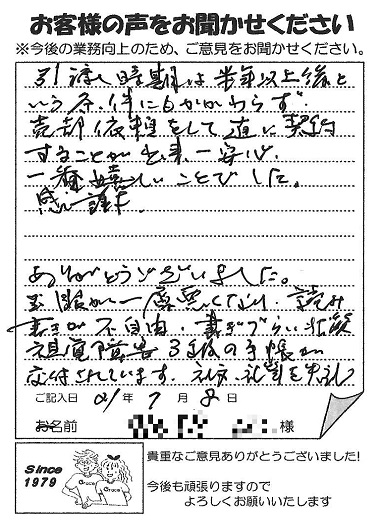 お客様の声をお聞かせください
※今後の業務向上のため、ご意見をお聞かせください。
引渡し時期は半年以上後と
いう条件にもかかわらず
売却依頼をして直に契約
することが出来一安心
一番嬉しいことでした。
感謝
ありがとうございました。
一層悪くなり、読み
書きが不自由、書きづらい
視覚障害3級の手帳が
交付されています。
ご記入日 21年 7月 8日
お名前 様
貴重なご意見ありがとうございました!
今後も頑張りますので
よろしくお願いいたします
Since
1979
Grace
Grace